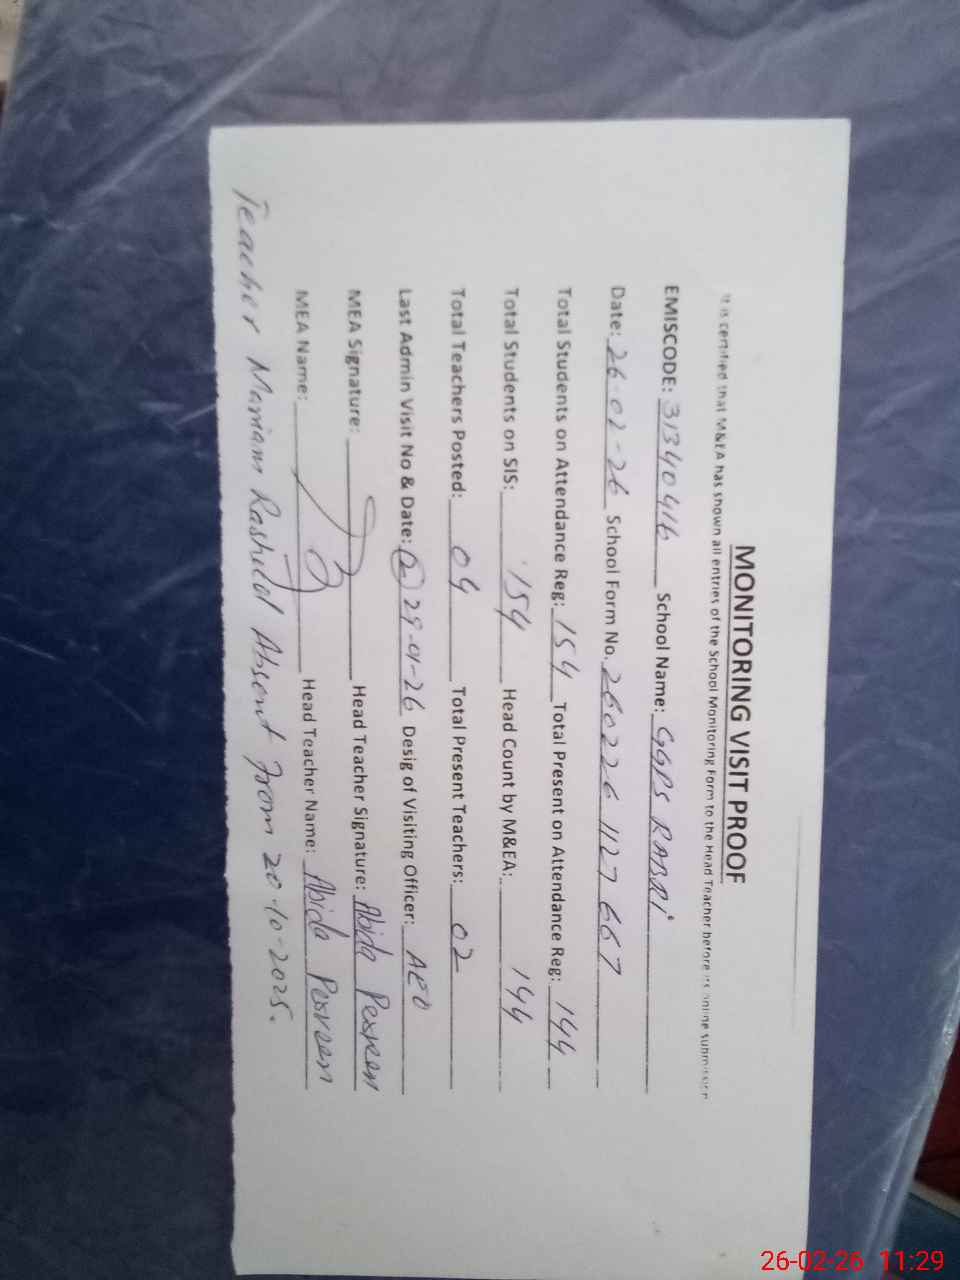 MONITORING VISIT PROOF
It is certified that M&EA has shown all entries of the School Monitoring Form to the Head Teacher before its online submission
EMISCODE: 31340416 School Name: GGPS RABRI
Date: 26-02-26 School Form No. 260226 1127 667
Total Students on Attendance Reg: 154 Total Present on Attendance Reg: 144
Total Students on SIS: 154 Head Count by M&EA: 144
Total Teachers Posted: 04 Total Present Teachers: 02
Last Admin Visit No & Date: (2) 29-01-26 Desig of Visiting Officer: AEO
MEA Signature: Head Teacher Signature: Abida Perveen
MEA Name: Head Teacher Name: Abida Perveen
Teacher Mariam Rashid Absent from 20-10-2025.
26-02-26 11:29